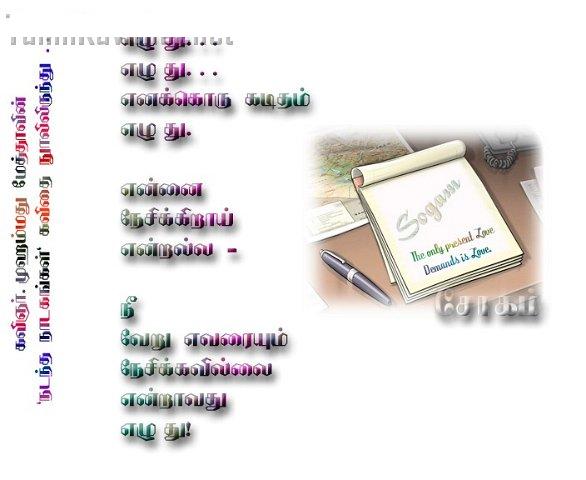 எழு து. . .
எழு து. . .
எனக்கொரு கடிதம்
எழு து.
என்னை
நேசிக்கிறாய்
என்றல்ல -
நீ
வேறு எவரையும்
நேசிக்கவில்லை
என்றாவது
எழு து!
கவிஞர். முஹம்மது மேத்தாவின்
'நடந்த நாடகங்கள்' கவிதை நூலிலிருந்து .
Sogam
The only present Love
Demands is Love.
சோகம்